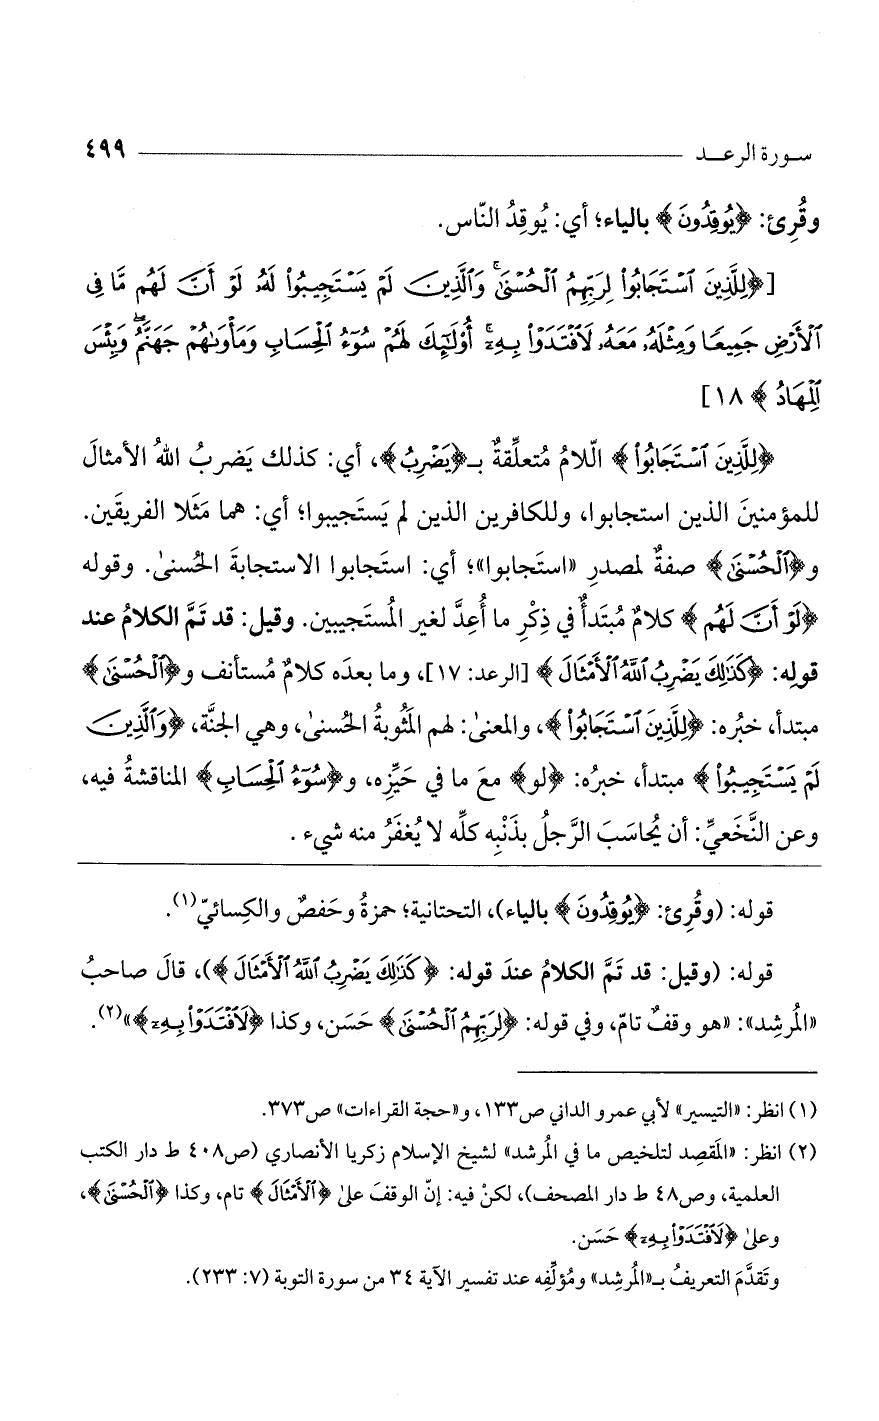 سورة الرعد ٤٩٩
وقُرِئ: ﴿يُوقِدُونَ﴾ بالياء؛ أي: يُوقِدُ النّاس.
[﴿لِلَّذِينَ ٱسْتَجَابُواْ لِرَبِّهِمُ ٱلْحُسْنَىٰ ۚ وَٱلَّذِينَ لَمْ يَسْتَجِيبُواْ لَهُۥ لَوْ أَنَّ لَهُم مَّا فِى
ٱلْأَرْضِ جَمِيعًا وَمِثْلَهُۥ مَعَهُۥ لَٱفْتَدَوْاْ بِهِۦٓ ۚ أُوْلَـٰٓئِكَ لَهُمْ سُوٓءُ ٱلْحِسَابِ وَمَأْوَىٰهُمْ جَهَنَّمُ ۖ وَبِئْسَ
ٱلْمِهَادُ﴾ ١٨]
﴿لِلَّذِينَ ٱسْتَجَابُواْ﴾ الّلامُ مُتعلِّقةٌ بـ﴿يَضْرِبُ﴾، أي: كذلك يَضربُ اللهُ الأمثالَ
للمؤمنينَ الذين استجابوا، وللكافرين الذين لم يَستَجيبوا؛ أي: هما مَثَلا الفريقَين.
و﴿ٱلْحُسْنَىٰ﴾ صفةٌ لمصدرِ «استَجابوا»؛ أي: استَجابوا الاستجابةَ الحُسنىٰ. وقوله
﴿لَوْ أَنَّ لَهُم﴾ كلامٌ مُبتَدأٌ في ذِكْرِ ما أُعِدَّ لغير المُستَجيبين. وقيل: قد تَمَّ الكلامُ عند
قولِه: ﴿كَذَٰلِكَ يَضْرِبُ ٱللَّهُ ٱلْأَمْثَالَ﴾ [الرعد: ١٧]، وما بعدَه كلامٌ مُستأنف و﴿ٱلْحُسْنَىٰ﴾
مبتدأ، خبُره: ﴿لِلَّذِينَ ٱسْتَجَابُواْ﴾، والمعنىٰ: لهم المَثُوبةُ الحُسنىٰ، وهي الجنَّة، ﴿وَٱلَّذِينَ
لَمْ يَسْتَجِيبُواْ﴾ مبتدأ، خبرُه: ﴿لو﴾ معَ ما في حَيِّزِه، و﴿سُوٓءُ ٱلْحِسَابِ﴾ المناقشةُ فيه،
وعن النَّخَعيِّ: أن يُحاسَبَ الرَّجلُ بذَنْبِه كلِّه لا يُغفَرُ منه شيء .
قوله: (وقُرِئ: ﴿يُوقِدُونَ﴾ بالياء)، التحتانية؛ حمزةُ وحَفصٌ والكِسائيّ(١).
قوله: (وقيل: قد تَمَّ الكلامُ عندَ قوله: ﴿كَذَٰلِكَ يَضْرِبُ ٱللَّهُ ٱلْأَمْثَالَ﴾)، قالَ صاحبُ
«المُرشِد»: «هو وقفٌ تامّ، وفي قوله: ﴿لِرَبِّهِمُ ٱلْحُسْنَىٰ﴾ حَسَن، وكذا ﴿لَٱفْتَدَوْاْ بِهِۦٓ﴾»(٢).
(١) انظر: «التيسير» لأبي عمرو الداني ص١٣٣، و«حجة القراءات» ص٣٧٣.
(٢) انظر: «المَقصِد لتلخيص ما في المُرشد» لشيخ الإسلام زكريا الأنصاري (ص٤٠٨ ط دار الكتب
العلمية، وص٤٨ ط دار المصحف)، لكنْ فيه: إنّ الوقفَ علىٰ ﴿ٱلْأَمْثَالَ﴾ تام، وكذا ﴿ٱلْحُسْنَىٰ﴾،
وعلىٰ ﴿لَٱفْتَدَوْاْ بِهِۦٓ﴾ حَسَن.
وتَقدَّمَ التعريفُ بـ«المُرشد» ومُؤلِّفِه عند تفسير الآية ٣٤ من سورة التوبة (٧: ٢٣٣).